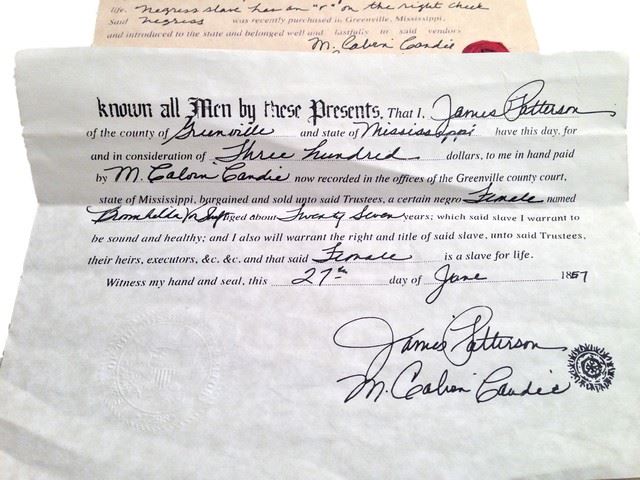 life. Negress slave has an "r" on the right cheek
Said Negress was recently purchased in Greenville, Mississippi,
and introduced to the state and belonged well and lastfully to said vendors
M. Calvin Candie
known all Men by these Presents, That I, James Patterson
of the county of Greenville and state of Mississippi have this day, for
and in consideration of Three hundred dollars, to me in hand paid
by M. Calvin Candie now recorded in the offices of the Greenville county court,
state of Mississippi, bargained and sold unto said Trustees, a certain negro Female named
Broomhilda Von aged about Twenty Seven years; which said slave I warrant to
be sound and healthy; and I also will warrant the right and title of said slave, unto said Trustees,
their heirs, executors, &c. &c. and that said Female is a slave for life.
Witness my hand and seal, this 27th day of June 1857
James Patterson
M. Calvin Candie